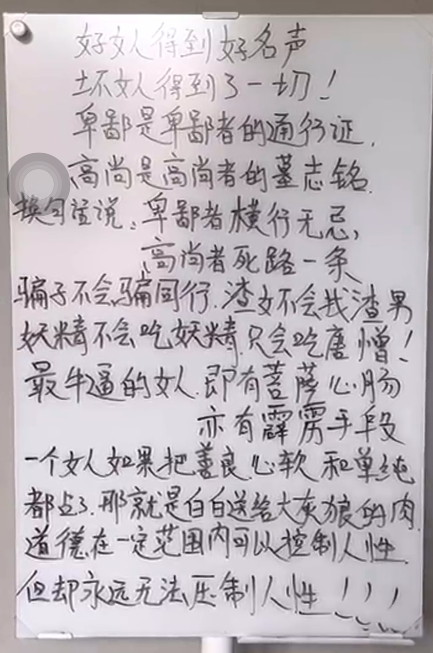 好女人得到好名声
坏女人得到了一切！
卑鄙是卑鄙者的通行证.
高尚是高尚者的墓志铭.
换句话说：卑鄙者横行无忌,
高尚者死路一条
骗子不会骗同行.渣女不会找渣男
妖精不会吃妖精.只会吃唐憎！
最牛逼的女人.即有菩萨心肠
亦有霹雳手段
一个女人如果把善良心软和单纯
都占了.那就是白白送给大灰狼的肉.
道德在一定范围内可以控制人性.
但却永远无法压制人性！！！